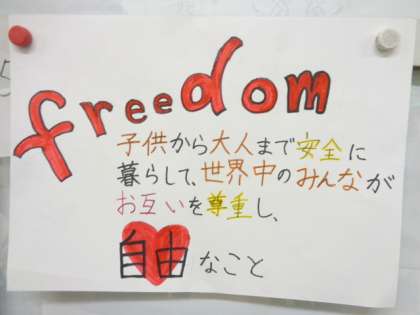 freedom
子供から大人まで安全に
暮らして、世界中のみんなが
お互いを尊重し、
自由なこと